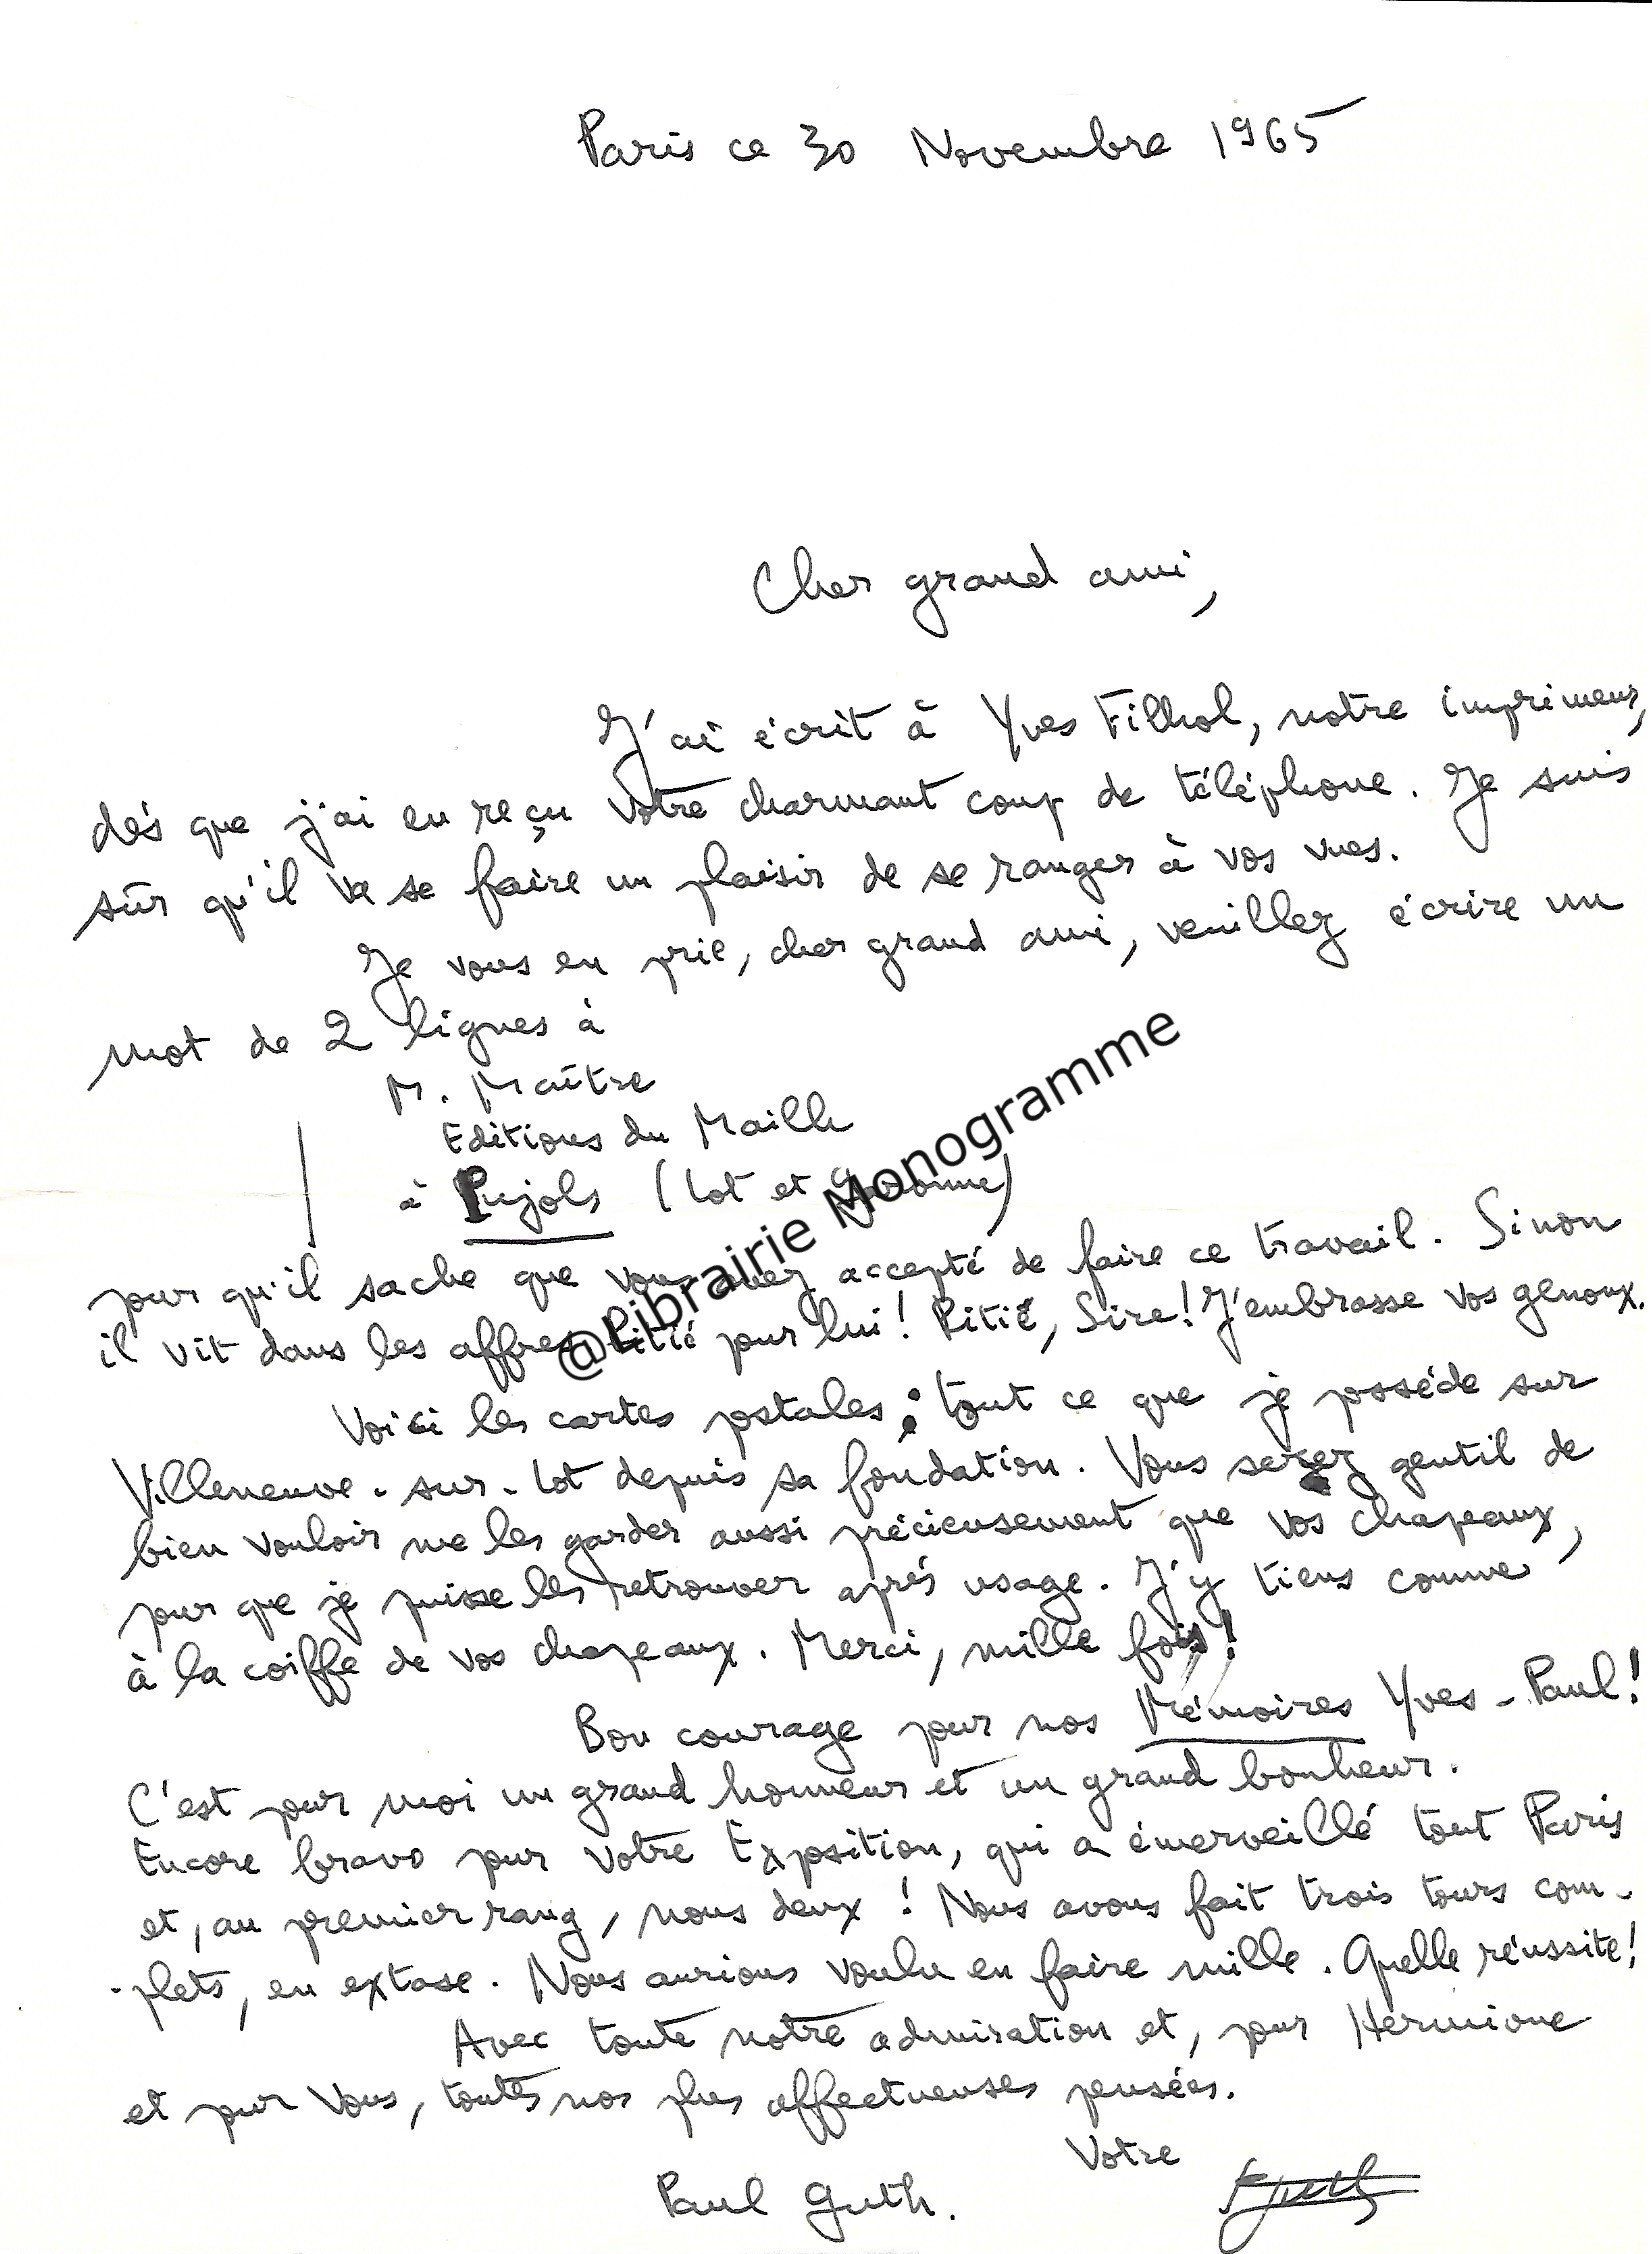 Paris ce 30 Novembre 1965
Cher grand ami,
J'ai écrit à Yves Filhol, notre imprimeur,
dès que j'ai eu reçu votre charmant coup de téléphone. Je suis
sûr qu'il va se faire un plaisir de se ranger à vos vues.
Je vous en prie, cher grand ami, veuillez écrire un
mot de 2 lignes à
M. Maître
Editions du Maille
à Pujols (Lot et Garonne)
pour qu'il sache que vous avez accepté de faire ce travail. Sinon
il vit dans les affres. Pitié pour lui ! Pitié, Sire ! J'embrasse vos genoux.
Voici les cartes postales : tout ce que je possède sur
Villeneuve-sur-Lot depuis sa fondation. Vous serez gentil de
bien vouloir me les garder aussi précieusement que vos chapeaux,
pour que je puisse les retrouver après usage. J'y tiens comme
à la coiffe de vos chapeaux. Merci, mille fois !
Bon courage pour nos Mémoires Yves-Paul !
C'est pour moi un grand honneur et un grand bonheur.
Encore bravo pour votre Exposition, qui a émerveillé tout Paris
et, au premier rang, nous deux ! Nous avons fait trois tours com-
-plets, en extase. Nous aurions voulu en faire mille. Quelle réussite !
Avec toute notre admiration et, pour Hermione
et pour vous, toutes nos plus affectueuses pensées.
Votre
Paul Guth.
PGuth
@Librairie Monogramme